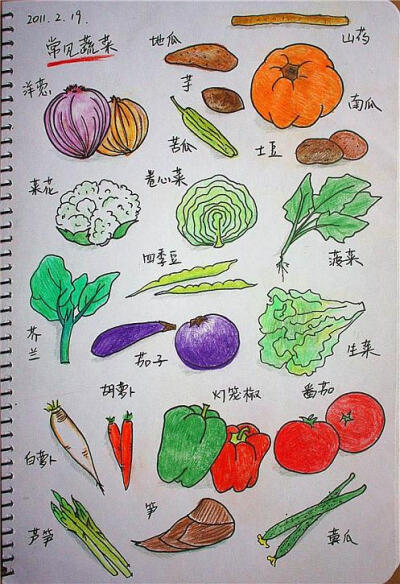 2011.2.19.
常见蔬菜
地瓜
山药
洋葱
芋
南瓜
苦瓜
土豆
菜花
卷心菜
菠菜
四季豆
芥兰
茄子
生菜
胡萝卜
灯笼椒
番茄
白萝卜
芦笋
笋
黄瓜